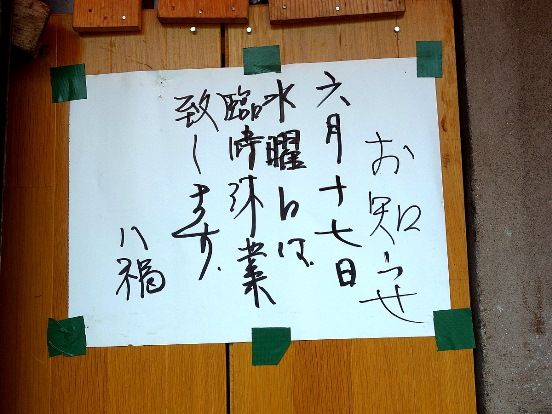 お知らせ
六月十七日
水曜日は、
臨時休業
致します。
八福